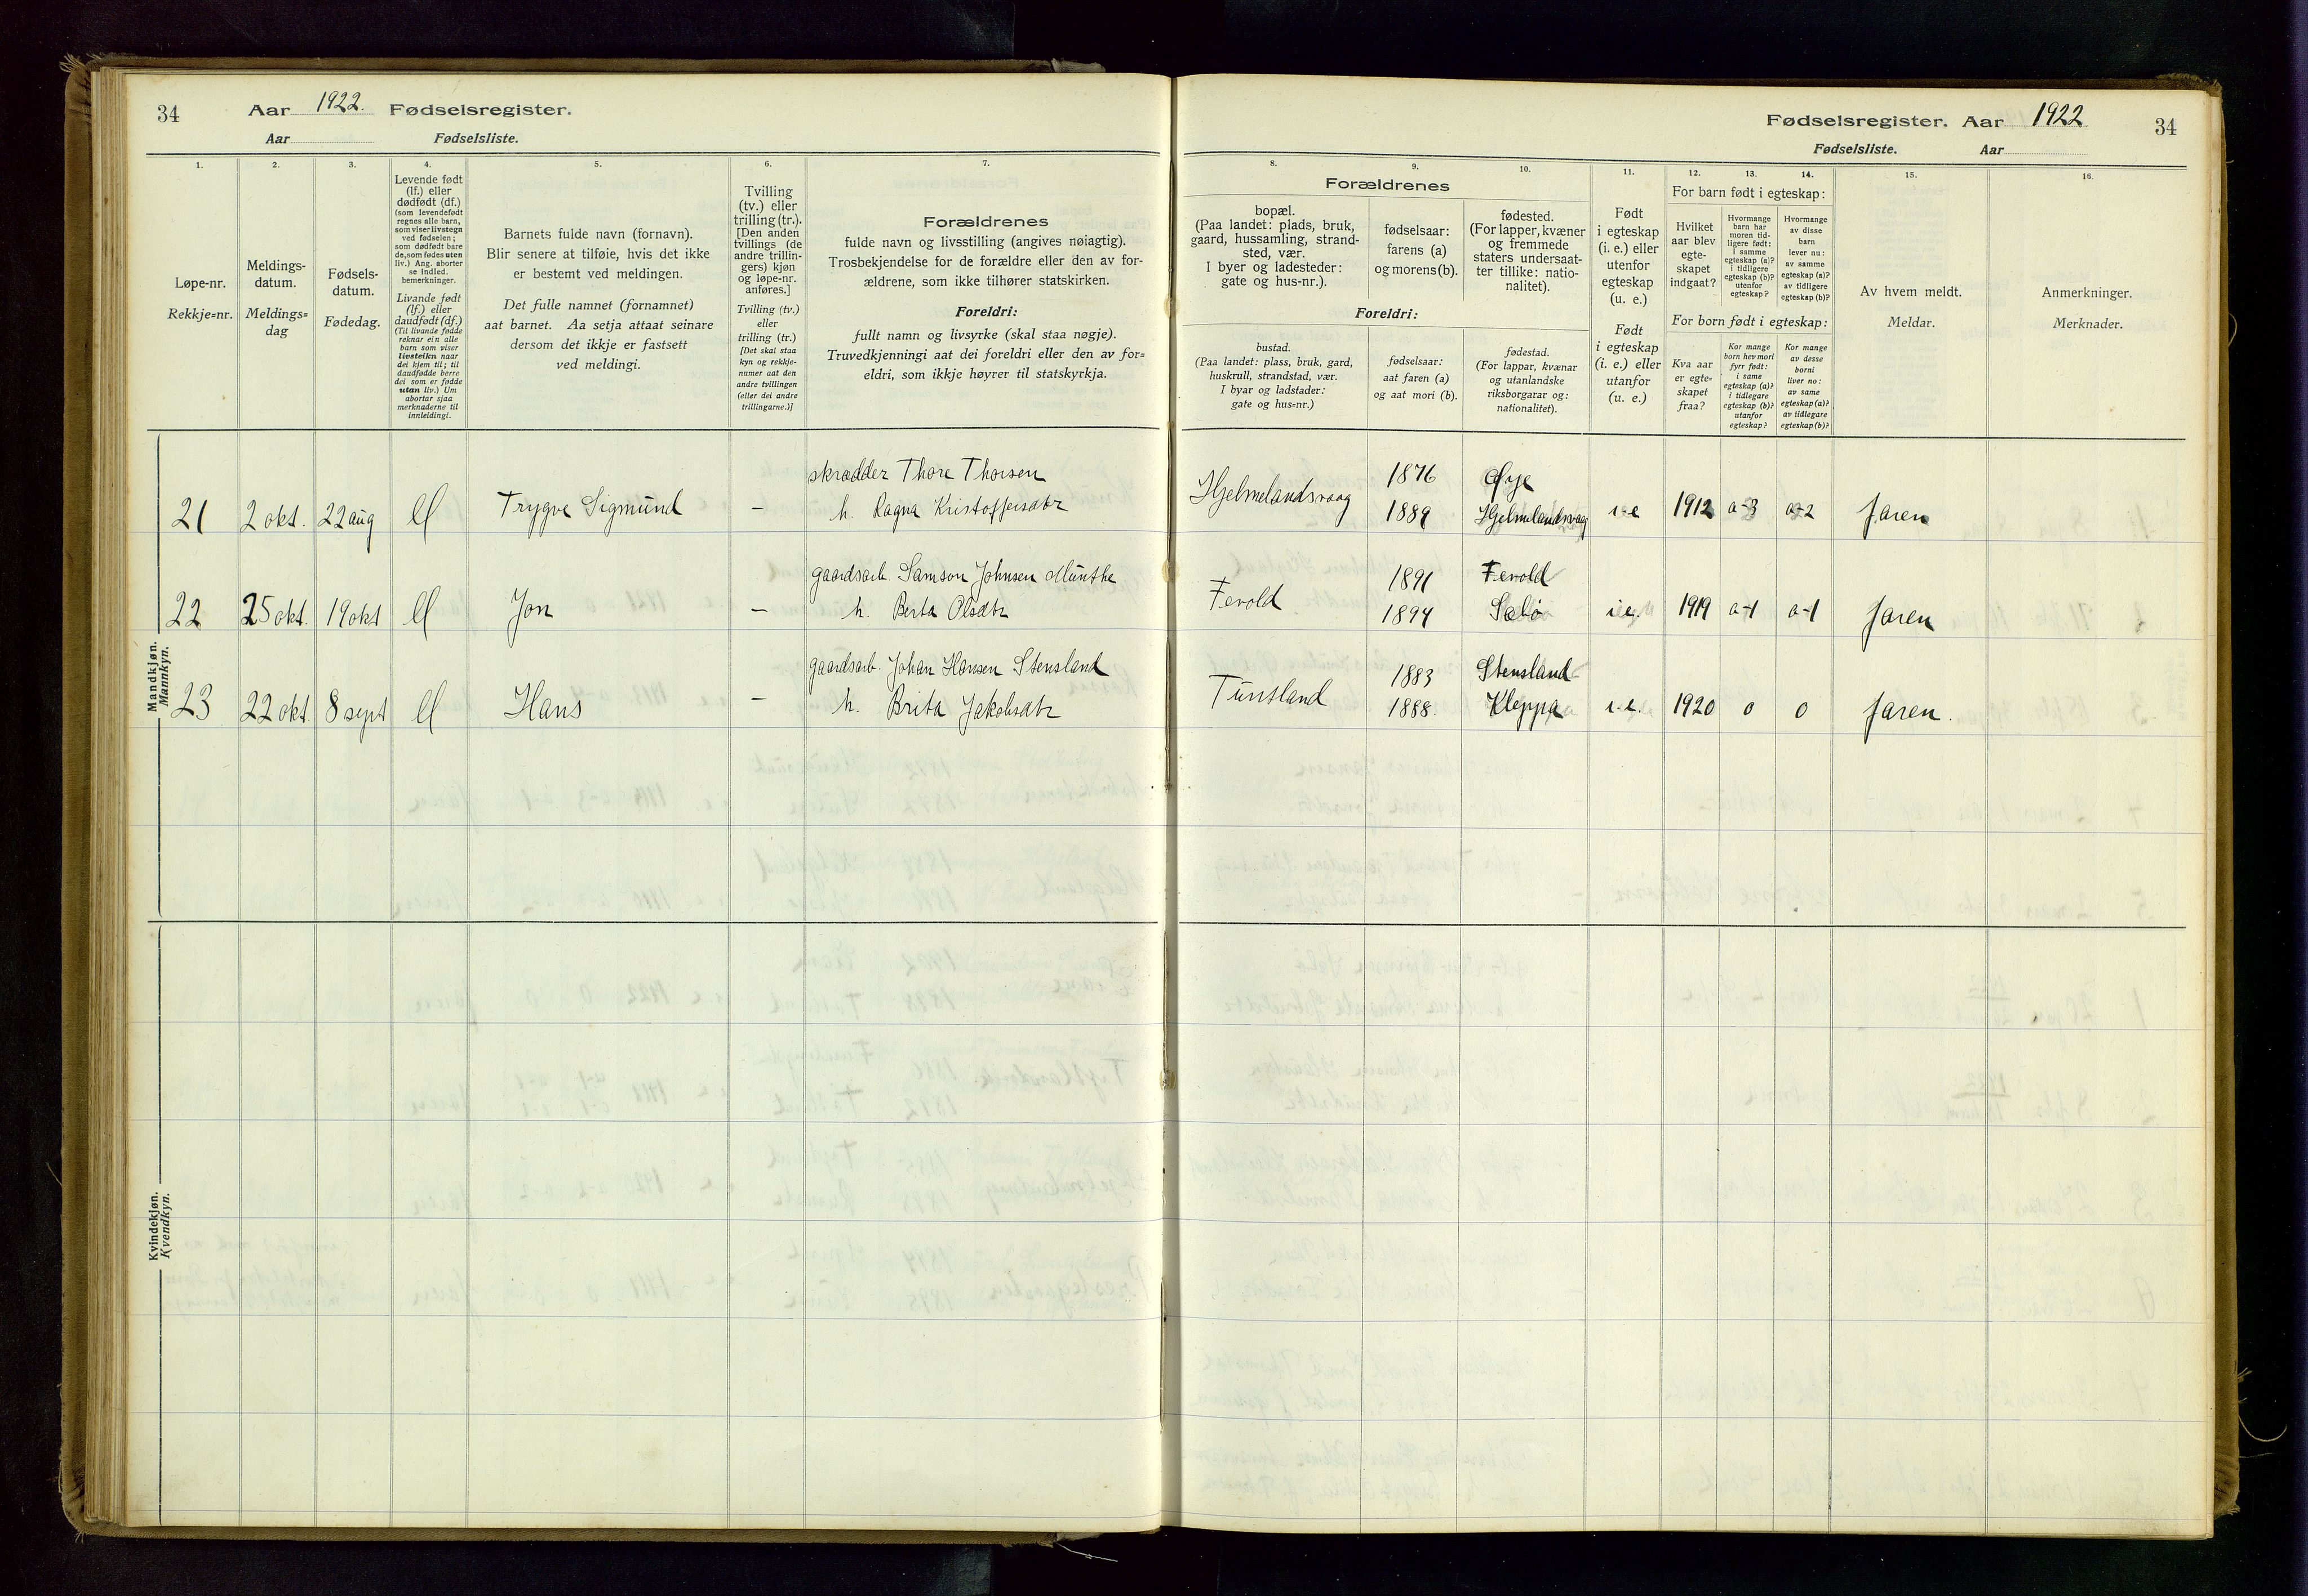 34 Aar 1922. Fødselsregister.
Aar Fødselsliste.
Fødselsregister. Aar 1922 34
Fødselsliste. Aar
1.
Løpe-nr.
Rekkje=nr.
2.
Meldings-
datum.
Meldings=
dag
3.
Fødsels-
datum.
Fødedag.
4.
Levende født
(lf.) eller
dødfødt (df.)
(som levendefødt
regnes alle barn,
som viser livstegn
ved fødselen;
som dødfødt bare
de, som fødes uten
liv.) Ang. aborter
se indled.
bemerkninger.
Livande født
(lf.) eller
daudfødt (df.)
(Til livande fødde
reknar ein alle
barn som viser
livsteikn naar
dei kjem til; til
daudfødde berre
dei som er fødde
utan liv.) Um
abortar sjaa
merknaderne til
innleidingi.
5.
Barnets fulde navn (fornavn).
Blir senere at tilføie, hvis det ikke
er bestemt ved meldingen.
Det fulle namnet (fornamnet)
aat barnet. Aa setja attaat seinare
dersom det ikkje er fastsett
ved meldingi.
6.
Tvilling
(tv.) eller
trilling (tr.).
[Den anden
tvillings (de
andre trillin-
gers) kjøn
og løpe-nr.
anføres.]
Tvilling (tv.)
eller
trilling (tr.)
[Det skal staa
kyn og rekkje-
numer aat den
andre tvillingen
(eller dei andre
trillingarne.)]
7.
Forældrenes
fulde navn og livsstilling (angives nøiagtig).
Trosbekjendelse for de forældre eller den av for-
ældrene, som ikke tilhører statskirken.
Foreldri:
fullt namn og livsyrke (skal staa nøgje).
Truvedkjenningi aat dei foreldri eller den av for=
eldri, som ikkje høyrer til statskyrkja.
8.
Forældrenes
bopæl.
(Paa landet: plads, bruk,
gaard, hussamling, strand-
sted, vær.
I byer og ladesteder:
gate og hus-nr.).
Foreldri:
bustad.
(Paa landet: plass, bruk, gard,
huskrull, strandstad, vær.
I byar og ladstader:
gate og hus-nr.)
9.
fødselsaar:
farens (a)
og morens (b).
fødselsaar:
aat faren (a)
og aat mori (b).
10.
fødested.
(For lapper, kvæner
og fremmede
staters undersaat-
ter tillike: natio-
nalitet).
fødestad.
(For lappar, kvænar
og utanlandske
riksborgarar og:
nationalitet).
11.
Født
i egteskap
(i. e.) eller
utenfor
egteskap
(u. e.)
Født
i egteskap
(i. e.) eller
utanfor
(u. e.)
12. 13. 14.
For barn født i egteskap:
Hvilket
aar blev
egte-
skapet
indgaat?
Hvormange
barn har
moren tid-
ligere født:
i samme
egteskap (a)?
i tidligere
egteskap (b)?
utenfor
egteskap?
Hvormange
av disse
barn
lever nu:
av samme
egteskap (a)?
av tidligere
egteskap (b)?
For born født i egteskap:
Kva aar
er egte=
skapet
fraa?
Kor mange
born hev mori
fyrr født:
i same
egteskap (a)?
i tidlegare
egteskap (b)?
utanfor
egteskap?
Kor mange
av desse
borni
liver no:
av same
egteskap (a)?
av tidlegare
egteskap (b)?
15.
Av hvem meldt.
Meldar.
16.
Anmerkninger.
Merknader.
Mandkjøn.
Mannkyn.
skrædder Thore Thorsen 1876 Øye
21 2 okt. 22 aug lf Trygve Sigmund – h. Ragna Kristoffersdtr Hjelmelandsvaag 1889 Hjelmelandsvaag i-e 1912 a-3 a-2 faren
gaardsarb. Samson Johnsen Munthe 1891 Fevold
22 25 okt. 19 okt lf Jon – h. Berta Olsdtr Fevold 1894 Sæbø i e. 1919 a-1 a-1 faren
gaardsarb. Johan Hansen Stensland 1883 Stensland
23 22 okt. 8 sept lf Hans – h. Brita Jakobsdtr Tunsland 1888. Kleppa i. e. 1920 0 0 faren.
Kvindekjøn.
Kvendkyn.